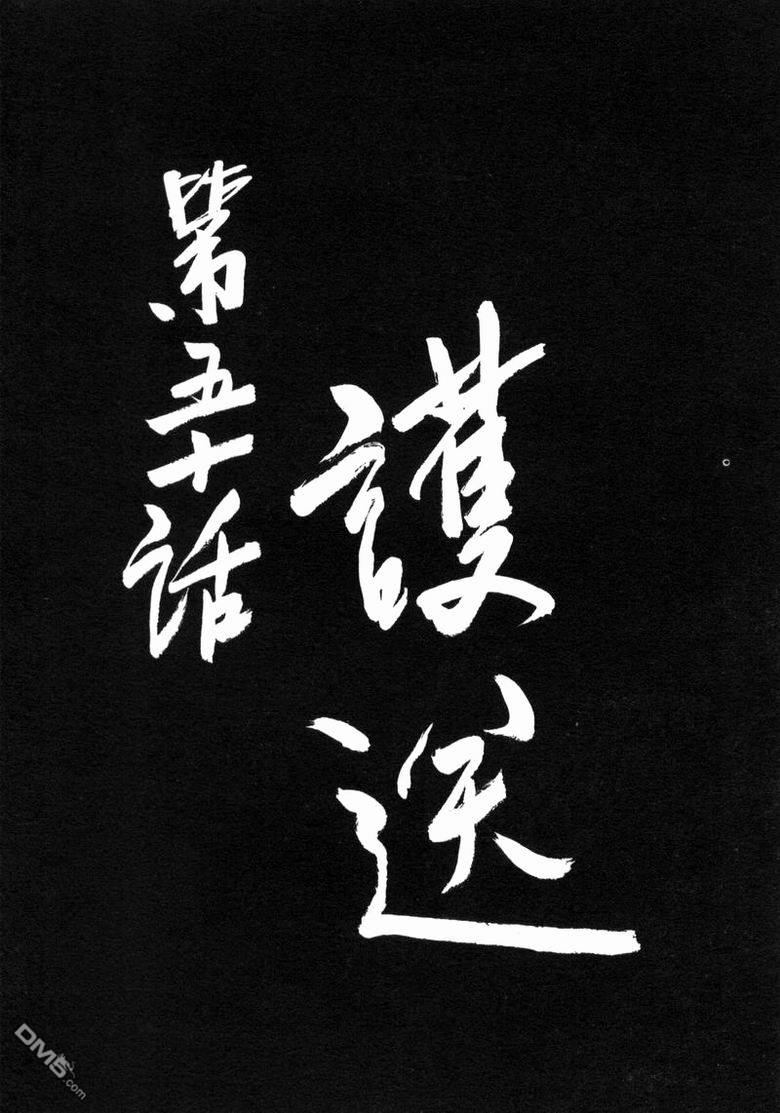 護送
第五十話
DM5.com